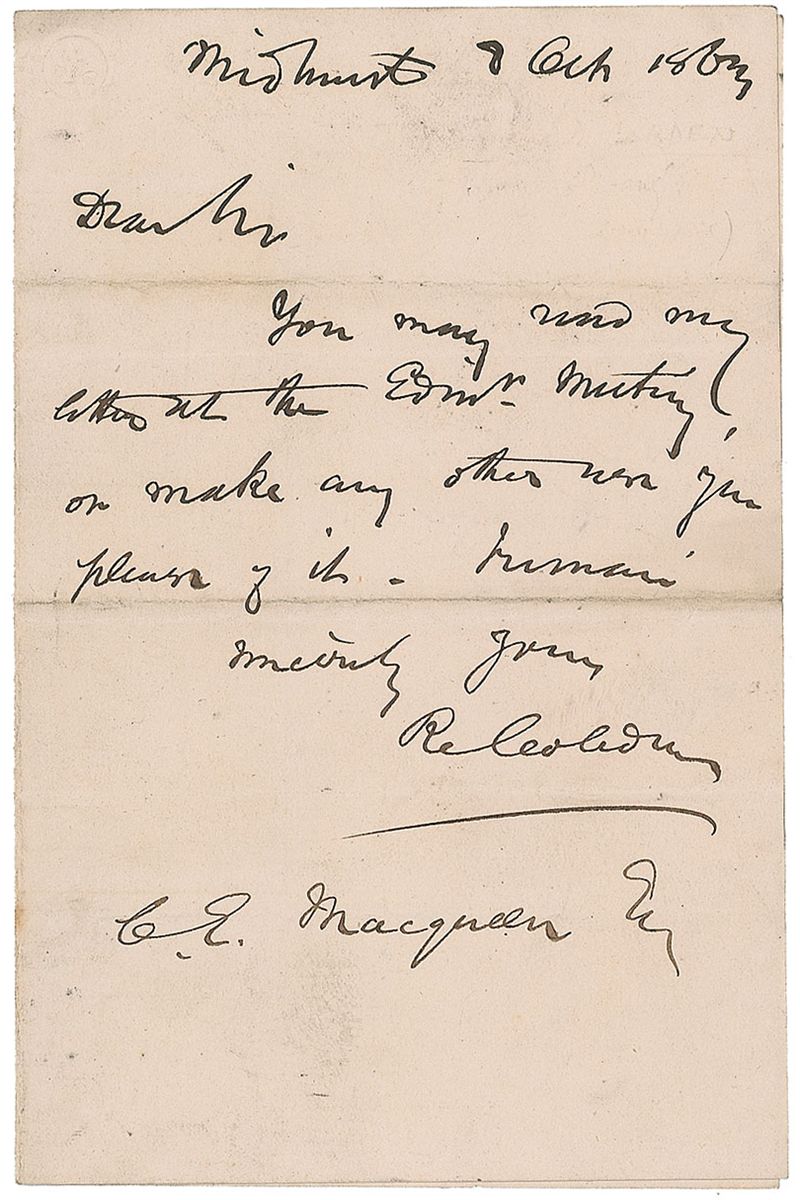 Midhurst 8 Oct 186
Dear Sir
You may read my
letter at the Edinr. Meeting,
or make any other use you
please of it - I remain
sincerely yours
R Cobden
C. E. Macqueen Esq